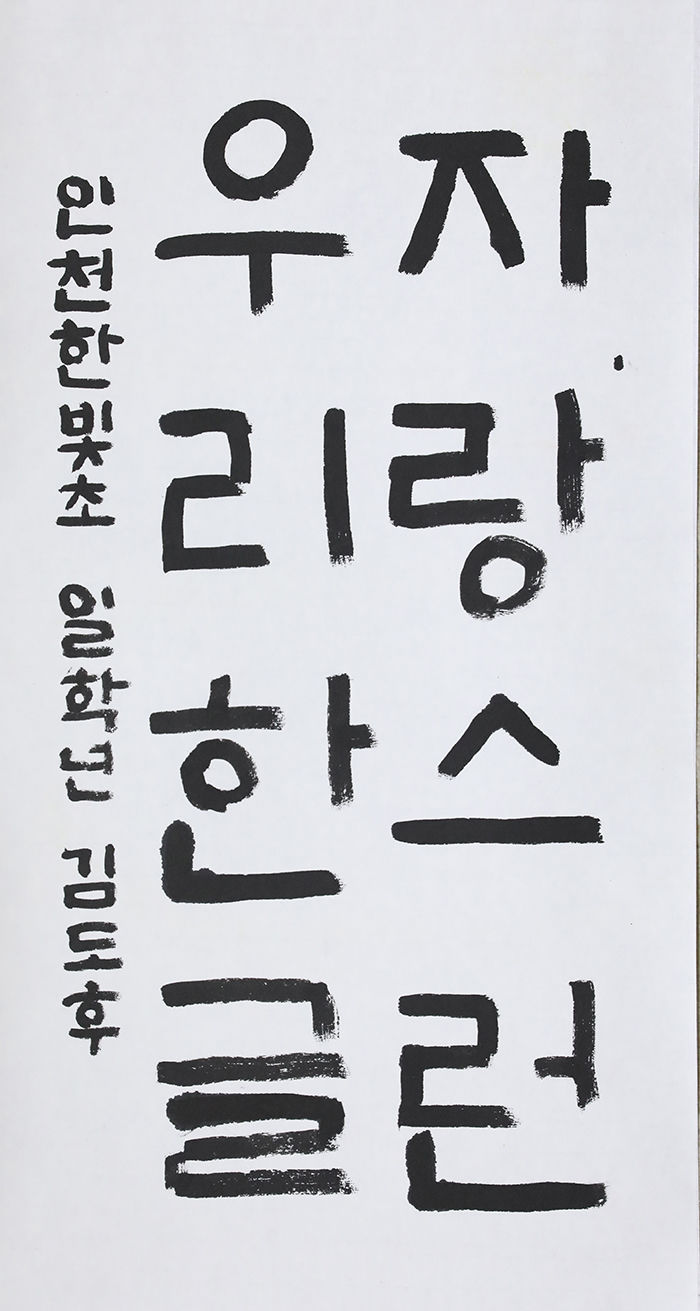 자랑스런
우리한글
인천한빛초 일학년 김도후